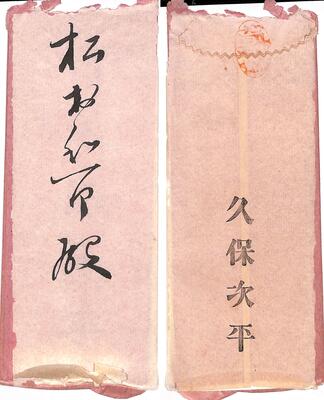 松村和市殿
久保次平